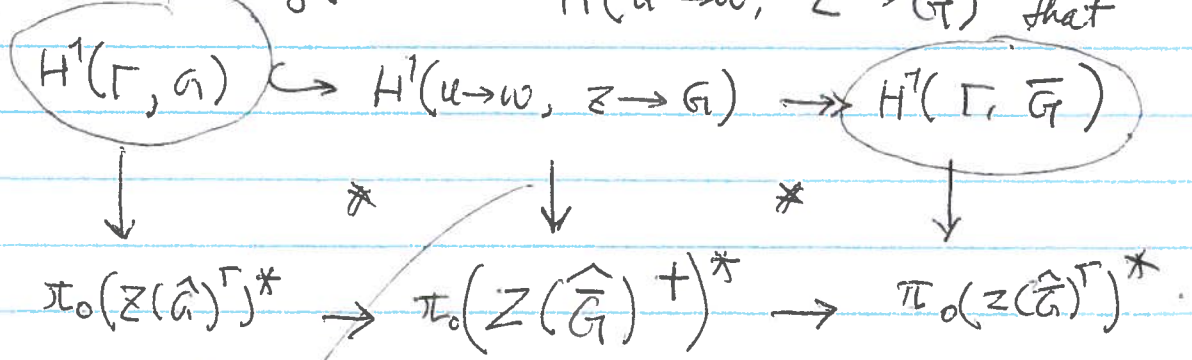 H¹(u→w, Z→G) that
H¹(Γ, G) ↪ H¹(u→w, Z→G) ↠ H¹(Γ, G̅)
↓ * ↓ * ↓
π₀(Z(Ĝ)^Γ)* → π₀(Z(Ĝ̅)⁺)* → π₀(Z(Ĝ̅)^Γ)*.